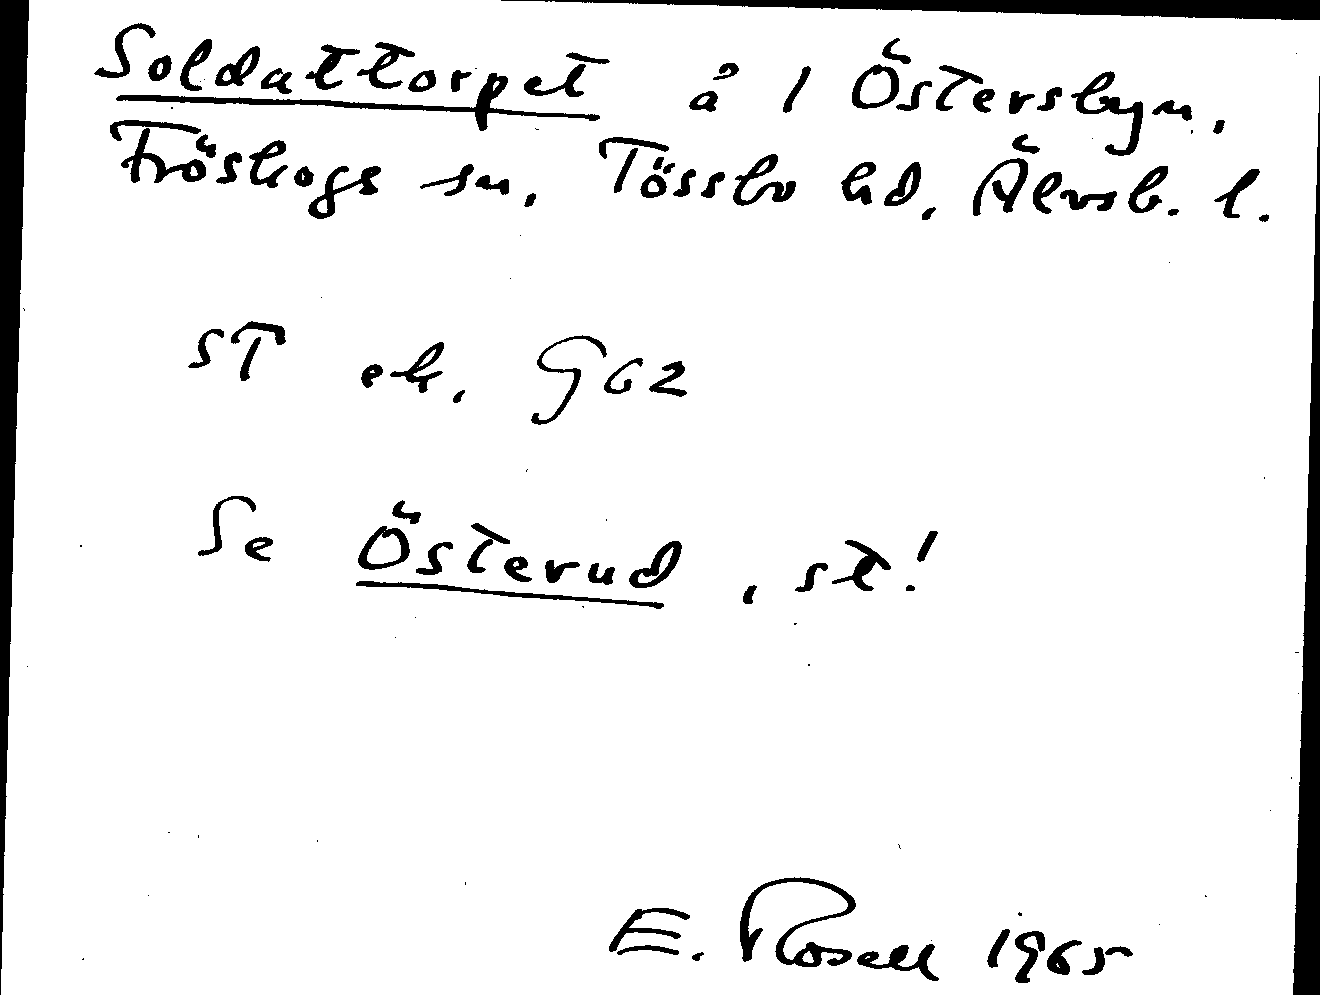 Soldattorpet å 1 Östersbyn,
Fröskogs sn, Tössbo hd, Älvsb. l.
ST ek. G62
Se Österud, st!
E. Rosell 1965